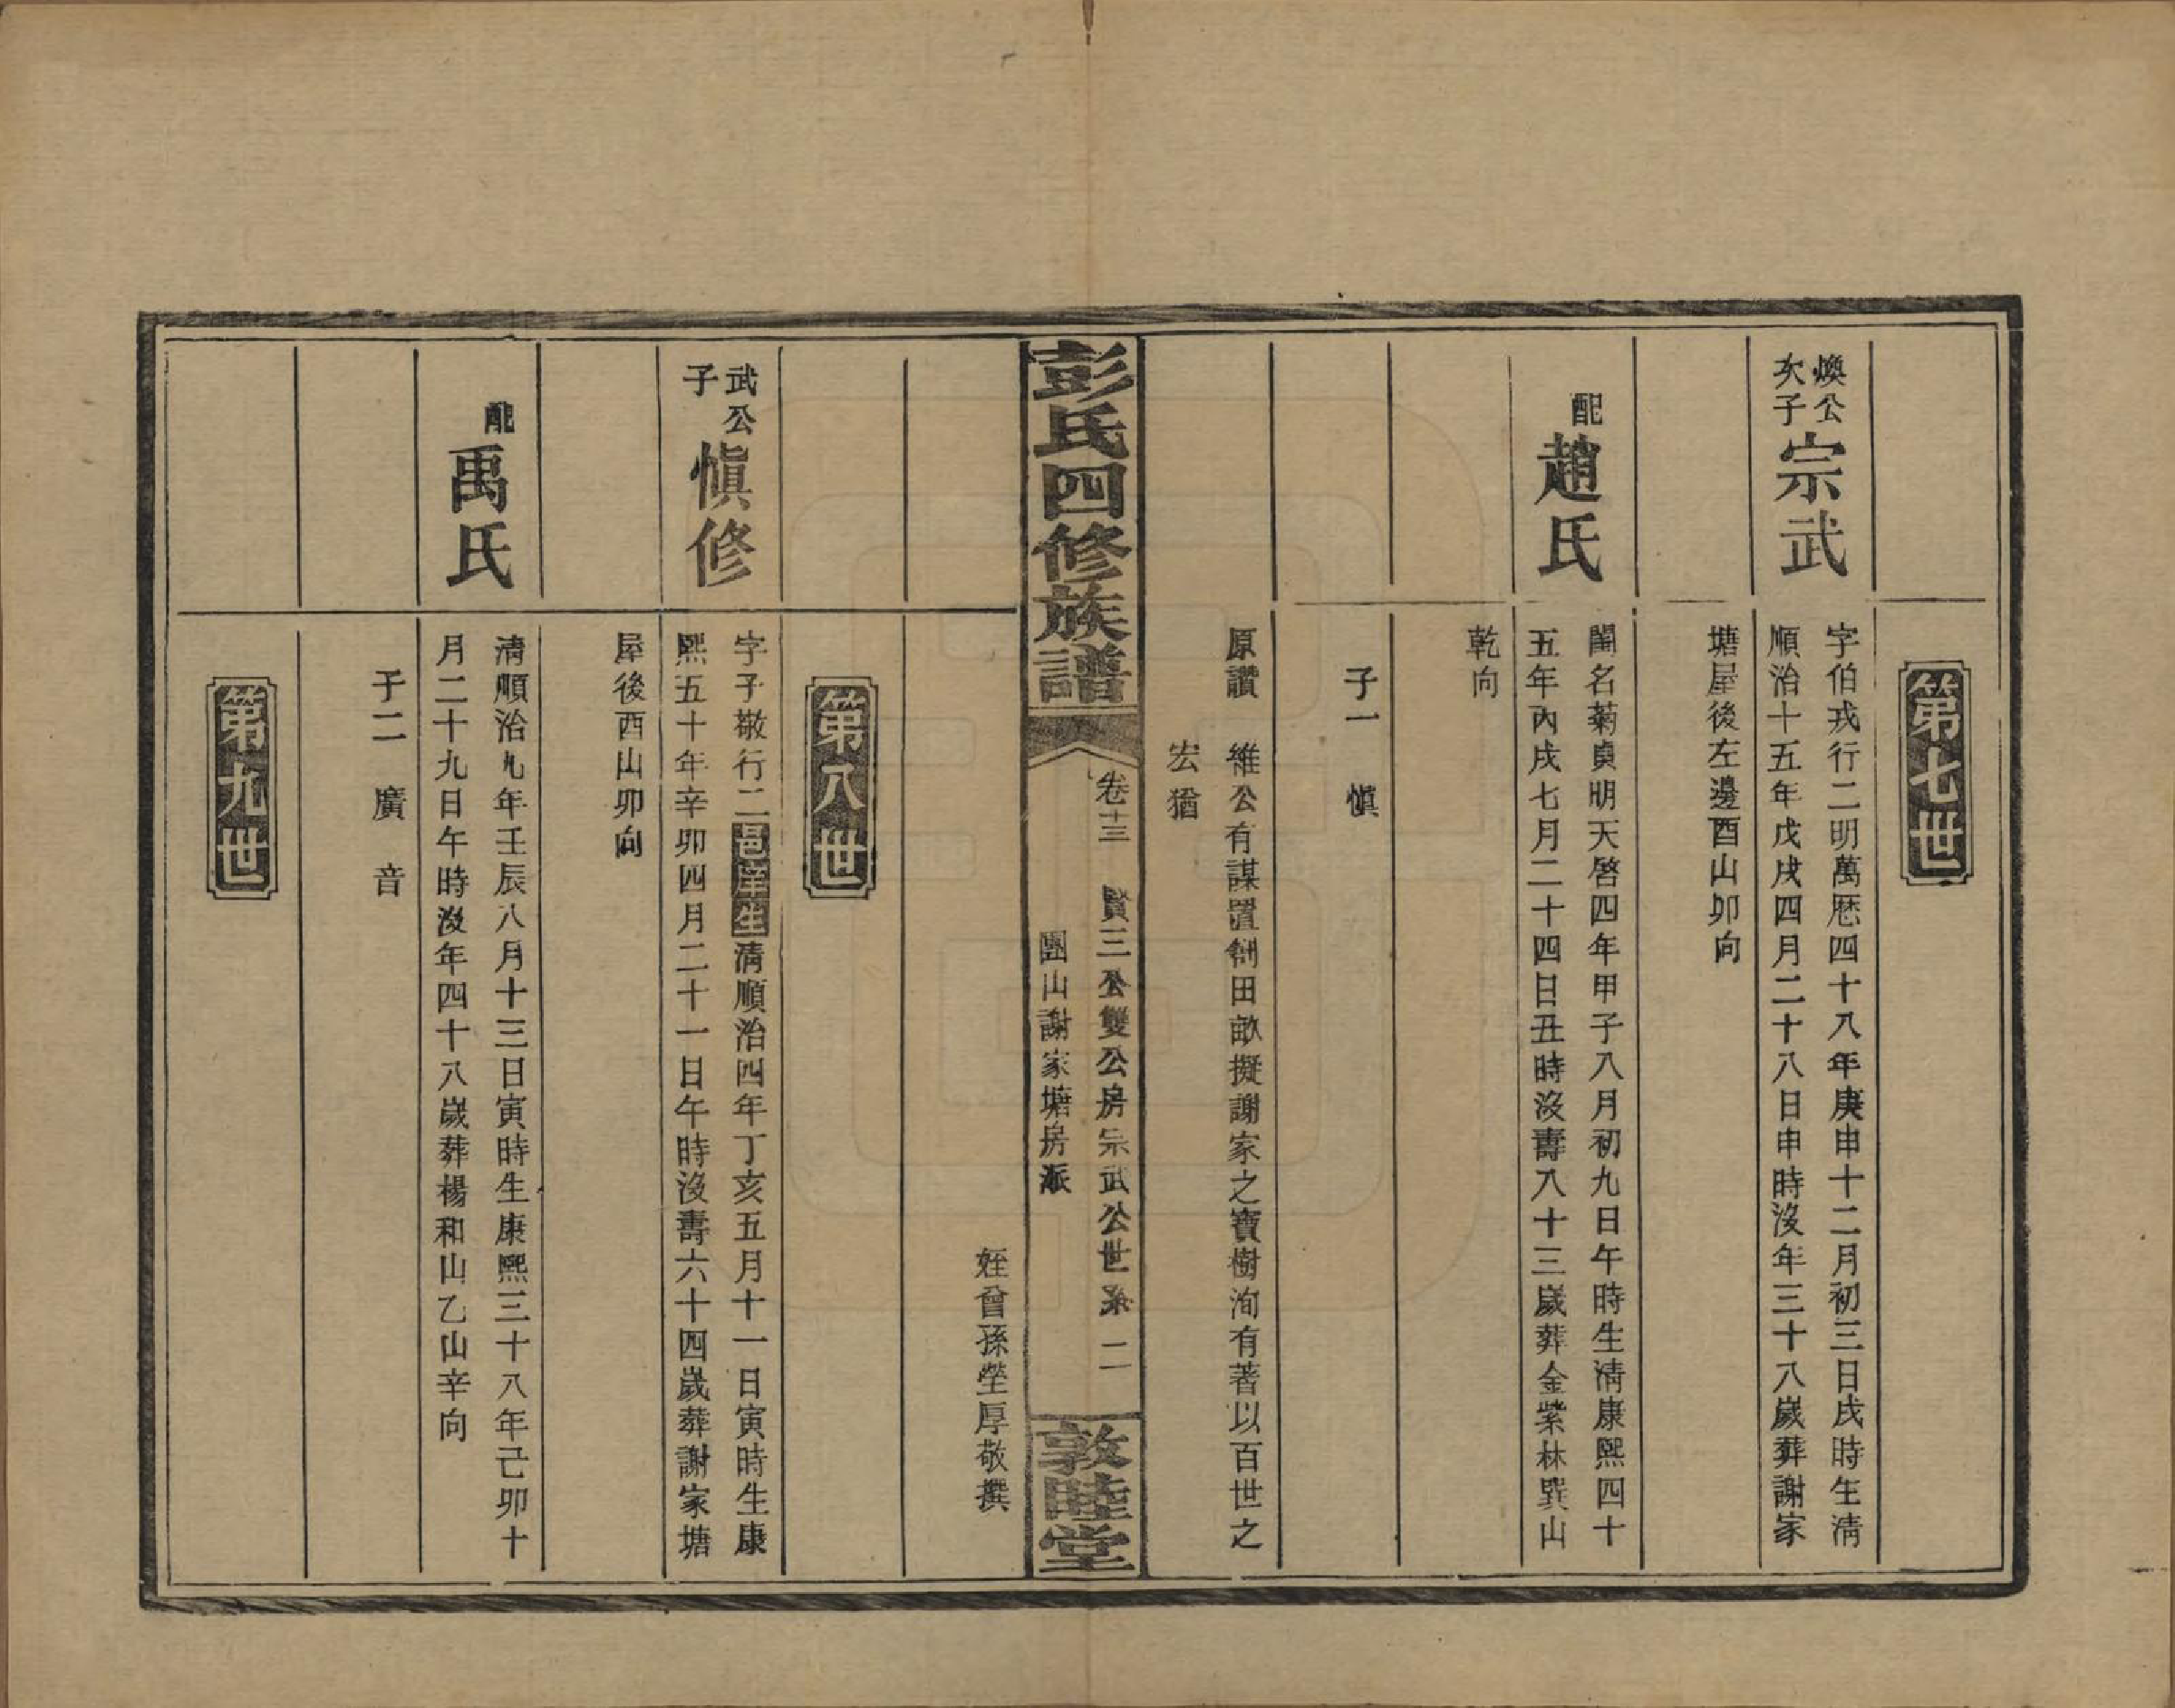 第七世
煥公
次子
宗武
字伯戎行二明萬厯四十八年庚申十二月初三日戌時生淸
順治十五年戊戌四月二十八日申時沒年三十八歲葬謝家
塘屋後左邊酉山卯向
配
趙氏
閨名菊貞明天啓四年甲子八月初九日午時生淸康熙四十
五年丙戌七月二十四日丑時沒壽八十三歲葬金紫林巽山
乾向
子一　愼
原讚　維公有謀置田畝擬謝家之寶樹洵有著以百世之
宏猶
彭氏四修族譜
卷十三　賢三公雙公房宗武公世系　二
團山謝家塘房派
敦睦堂
姪曾孫塋厚敬撰
第八世
武公
子
愼修
字子敬行二邑庠生淸順治四年丁亥五月十一日寅時生康
熙五十年辛卯四月二十一日午時沒壽六十四歲葬謝家塘
屋後酉山卯向
配
禹氏
淸順治九年壬辰八月十三日寅時生康熙三十八年己卯十
月二十九日午時沒年四十八歲葬楊和山乙山辛向
子二　廣　音
第九世